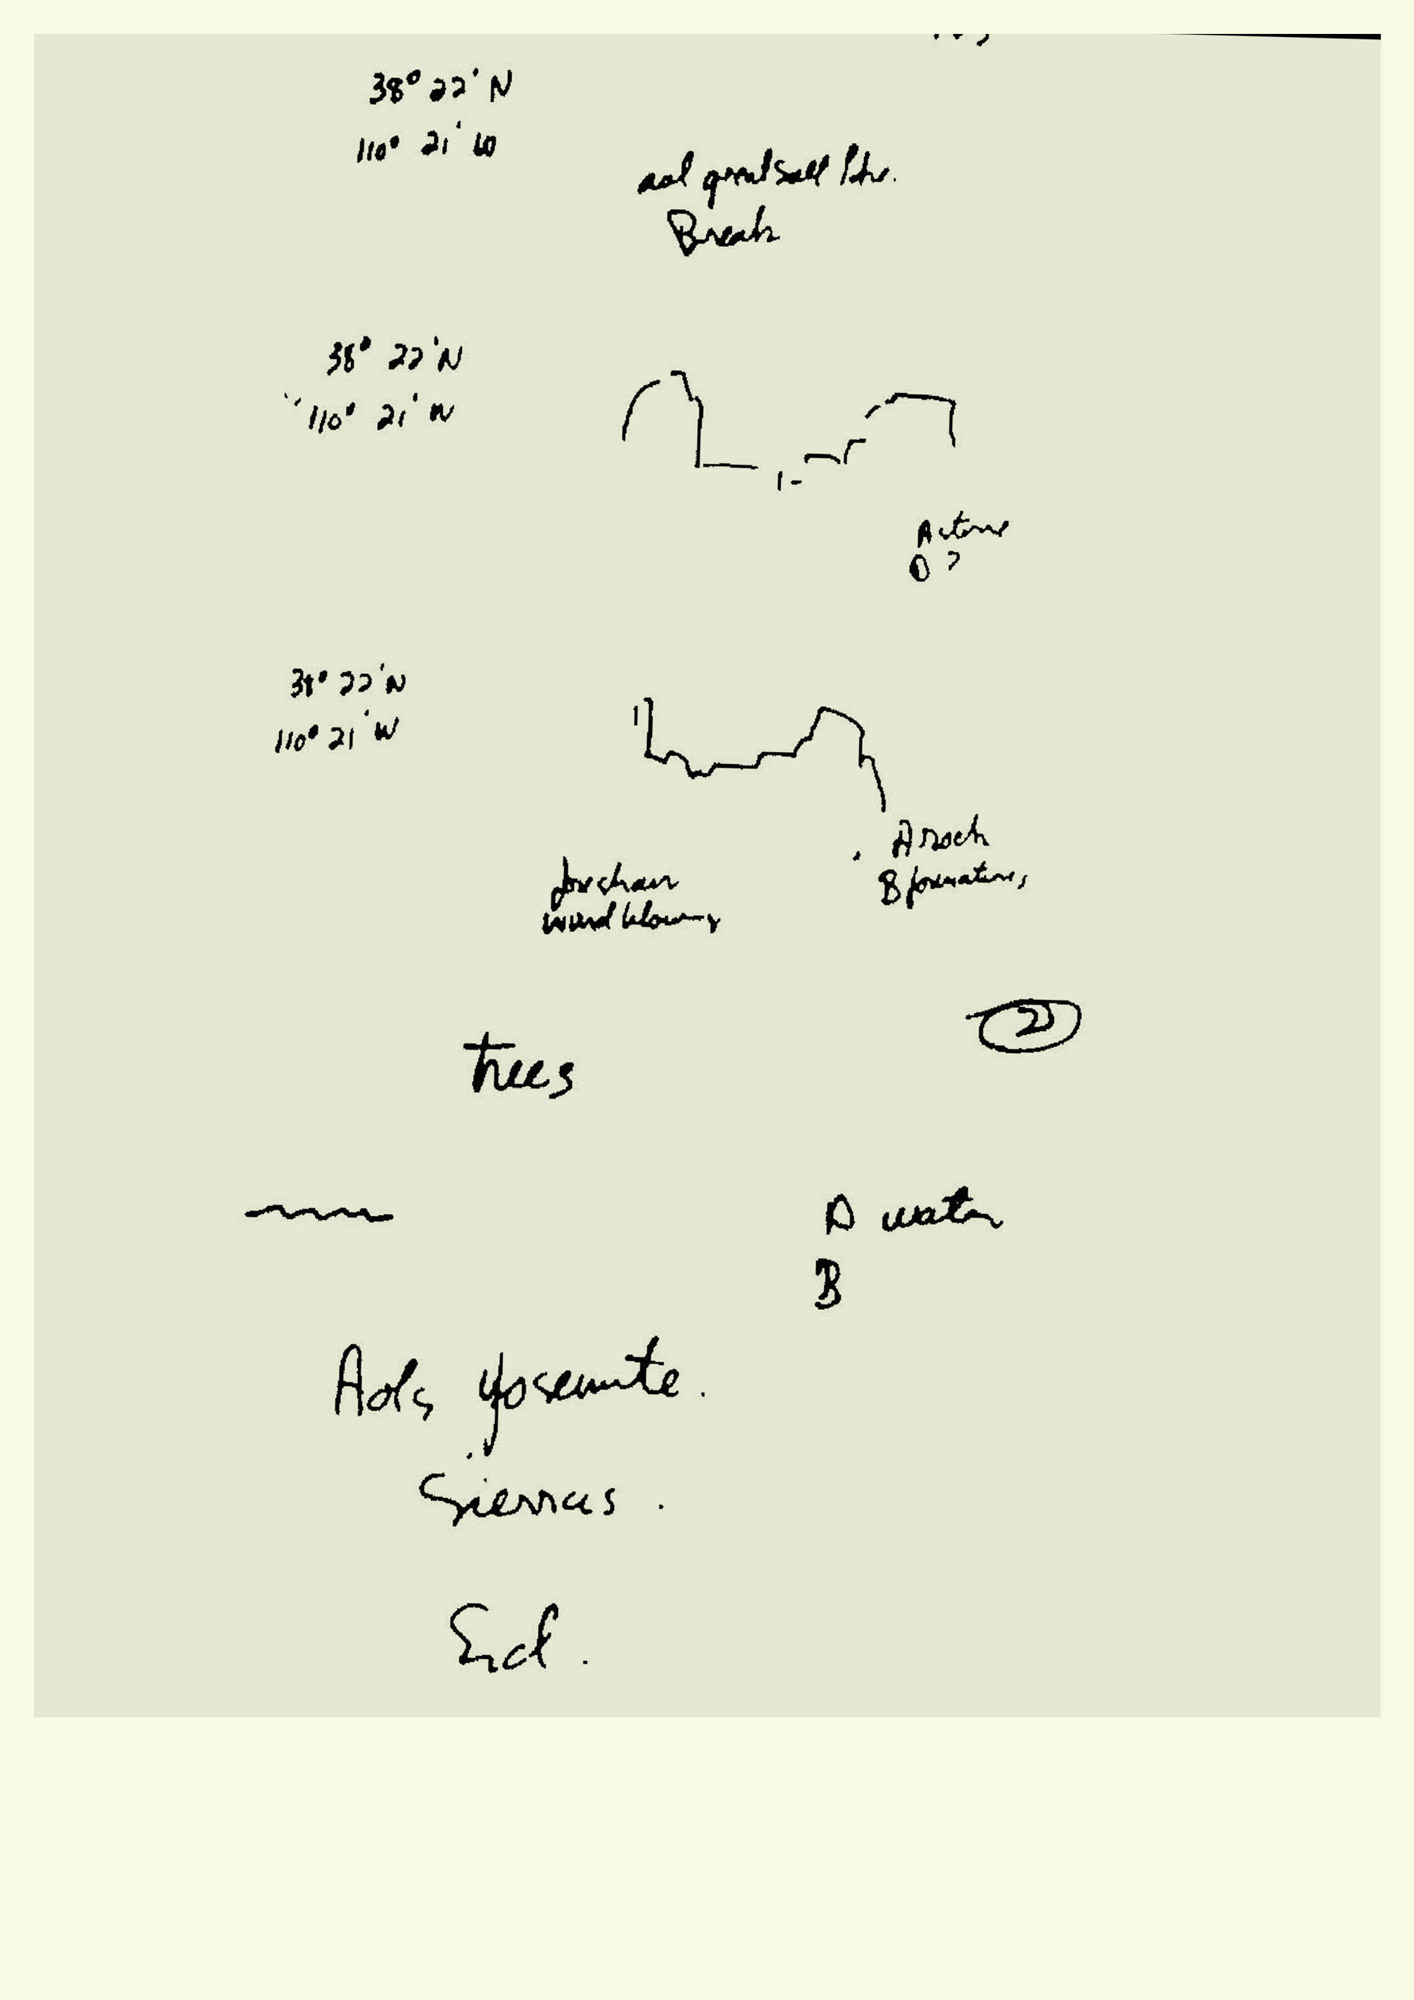 38° 22' N
110° 21' W
aol great Salt
Break
38° 22' N
110° 21' W
A stone
38° 22' N
110° 21' W
A rock
B formations
wind blowing
2
trees
A water
B
Aols yosemite.
Sierras.
End.